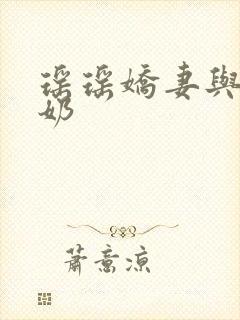 瑶瑶嬌妻與
奶
蕭意涼